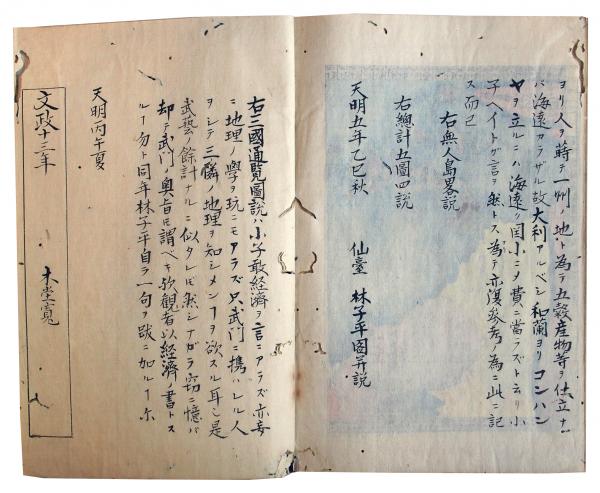 ヨリ人ヲ蒔テ一州ノ地ト為テ五穀産物等ヲ仕立ナ
バ海遠カラザル故大利アルベシ和蘭ヨリコンハン
ヤヲ立ルニハ海遠ク国小ニメ費ニ當ラズト云リ小
子ヘイトガ言ヲ然トス為テ亦復参考ノ為ニ此ニ記
ス而已
右無人島畧説
右總計五圖四説
天明五年乙巳秋 仙臺 林子平圖并説
右三國通覧圖説ハ小子敢経済ヲ言ニアラズ亦妄
ニ地理ノ學ヲ玩ニモアラズ只武門ニ携ハレル人
ヲシテ三隣ノ地理ヲ知シメンヿヲ欲スル耳是
武藝ノ餘計ナルニ似タレ𪜈然シナガラ窃ニ憶バ
却テ武門ノ奥旨𪜈謂ベキ欤観者以経済ノ書トス
ルヿ勿ト同年林子平自ラ一句ヲ跋ニ加ルヿ尓
天明丙午夏
文政十三年 木堂寛